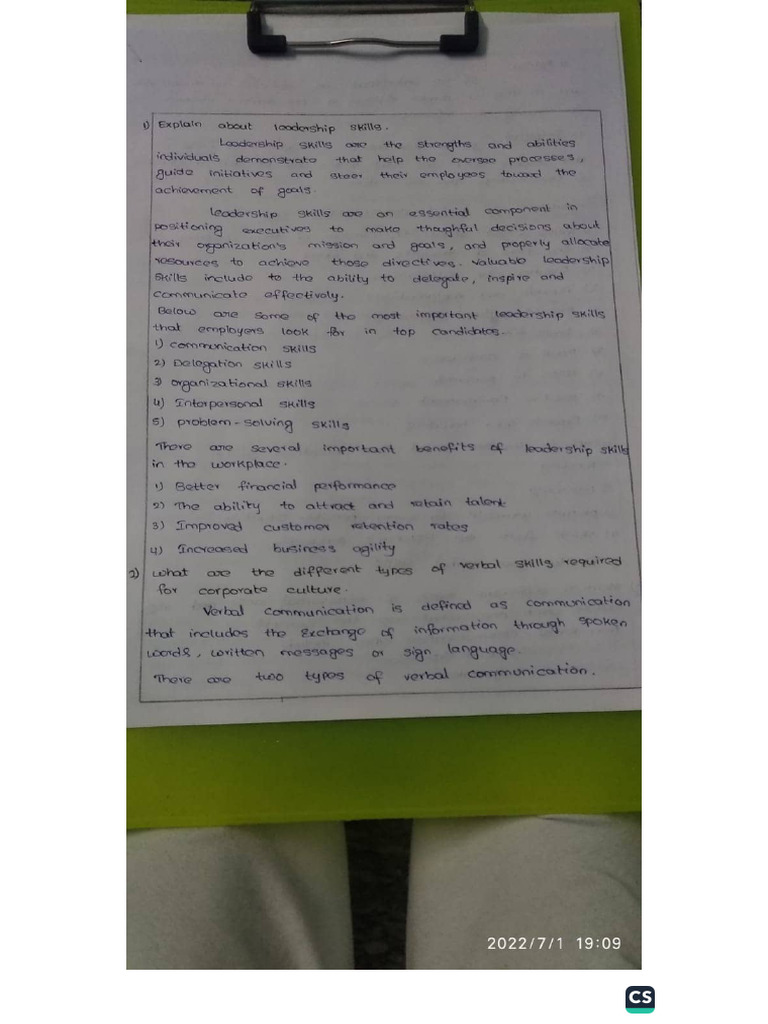 1) Explain about leadership skills.
Leadership skills are the strengths and abilities
individuals demonstrate that help the oversee processes,
guide initiatives and steer their employees toward the
achievement of goals.
leadership skills are an essential component in
positioning executives to make thoughful decisions about
their organization's mission and goals, and properly allocate
resources to achieve those directives. Valuable leadership
skills include to the ability to delegate, inspire and
communicate effectively.
Below are some of the most important leadership skills
that employers look for in top candidates.
1) communication skills
2) Delegation skills
3) organizational skills
4) Interpersonal skills
5) problem-solving skills
There are several important benefits of leadership skills
in the workplace.
1) Better financial performance
2) The ability to attract and retain talent
3) Improved customer retention rates
4) Increased business agility
2) what are the different types of verbal skills required
for corporate culture.
Verbal communication is defined as communication
that includes the Exchange of information through spoken
words, written messages or sign language.
There are two types of verbal communication.
2022/7/1 19:09
CS